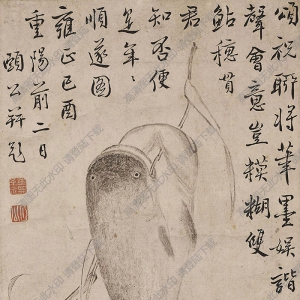 頌祝聊將筆墨娱諧
聲會意豈模糊雙
鮎穗貫
君
知否便
是年年
順遂圖
雍正己酉
重陽前二日
頤公並題